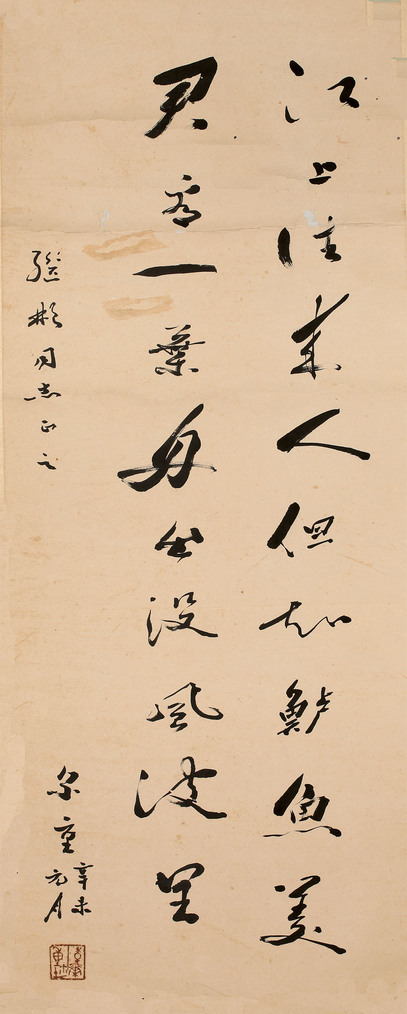 江上往来人但知鲈魚美
君看一葉舟出没風波里
继彬同志正之
尔重
辛未
元月